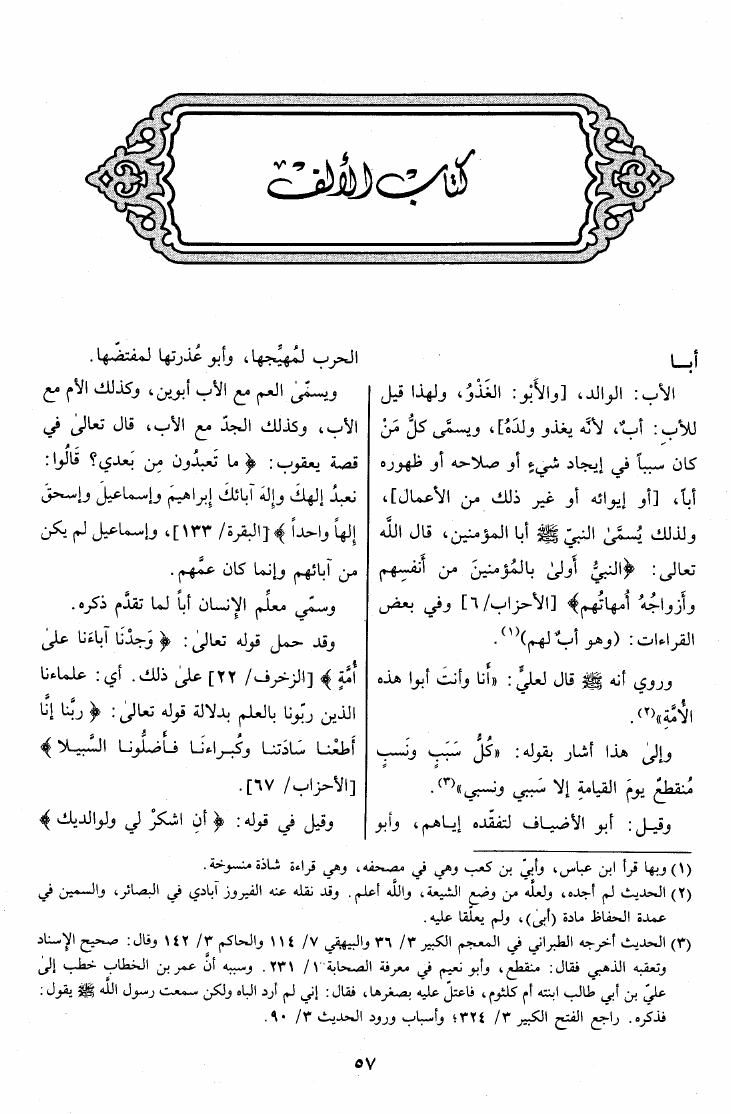 كتاب الألف
أبـا
الأب: الوالد، [والأَبْو: الغَذْوُ، ولهذا قيل
للأب: أبٌ، لأنَّه يغذو ولدَهُ]، ويسمَّى كلُّ مَنْ
كان سبباً في إيجاد شيءٍ أو صلاحه أو ظهوره
أباً، [أو إيوائه أو غير ذلك من الأعمال]،
ولذلك يُسمَّىٰ النبيّ ﷺ أبا المؤمنين، قال اللَّه
تعالى: ﴿النبيُّ أَولىٰ بالمُؤمنينَ من أَنفسِهم
وأزواجُهُ أُمهاتُهم﴾ [الأحزاب/ ٦] وفي بعض
القراءات: (وهو أبٌ لهم)(١).
وروي أنه ﷺ قال لعليٍّ: «أَنا وأنتَ أبوا هذه
الأُمَّةِ»(٢).
وإلىٰ هذا أشار بقوله: «كُلُّ سَبَبٍ ونَسبٍ
مُنقطعٌ يومَ القيامةِ إلا سَببي ونسبي»(٣).
وقيـل: أبو الأضيـاف لتفقّده إيـاهم، وأبو
الحرب لمُهيِّجها، وأبو عُذرتها لمفتضّها.
ويسمّىٰ العم مع الأب أبوين، وكذلك الأم مع
الأب، وكذلك الجدّ مع الأب، قال تعالىٰ في
قصة يعقوب: ﴿ ما تَعبدُون مِن بَعدي؟ قَالُوا:
نعبدُ إلهكَ وإلهَ آبائكَ إبراهيمَ وإسماعيلَ وإسحقَ
إلهاً واحداً ﴾ [البقرة/ ١٣٣]، وإسماعيل لم يكن
من آبائهم وإنما كان عمَّهم.
وسمّي معلِّم الإنسان أباً لما تقدَّم ذكره.
وقد حمل قوله تعالىٰ: ﴿ وَجدْنَا آباءَنا علىٰ
أُمَّةٍ ﴾ [الزخرف/ ٢٢] علىٰ ذلك. أي: علماءنا
الذين ربّونا بالعلم بدلالة قوله تعالىٰ: ﴿ ربَّنا إنَّا
أَطعْنـا سَادَتنـا وكُبـراءنَـا فـأضلُّونـا السَّبيـلا ﴾
[الأحزاب/ ٦٧].
وقيل في قوله: ﴿ أنِ اشكرْ لي ولوالديك ﴾
(١) وبها قرأ ابن عباس، وأُبيّ بن كعب وهي في مصحفه، وهي قراءة شاذة منسوخة.
(٢) الحديث لم أجده، ولعلّه من وضع الشيعة، واللَّه أعلم. وقد نقله عنه الفيروز آبادي في البصائر، والسمين في
عمدة الحفاظ مادة (أبىٰ)، ولم يعلّقا عليه.
(٣) الحديث أخرجه الطبراني في المعجم الكبير ٣/ ٣٦ والبيهقي ٧/ ١١٤ والحاكم ٣/ ١٤٢ وقال: صحيح الإسناد
وتعقبه الذهبي فقال: منقطع، وأبو نعيم في معرفة الصحابة ١/ ٢٣١. وسببه أنَّ عمر بن الخطاب خطب إلىٰ
عليّ بن أبي طالب ابنته أم كلثوم، فاعتلّ عليه بصغرها، فقال: إني لم أرد الباه ولكن سمعت رسول اللَّه ﷺ يقول:
فذكره. راجع الفتح الكبير ٣/ ٣٢٤؛ وأسباب ورود الحديث ٣/ ٩٠.
٥٧